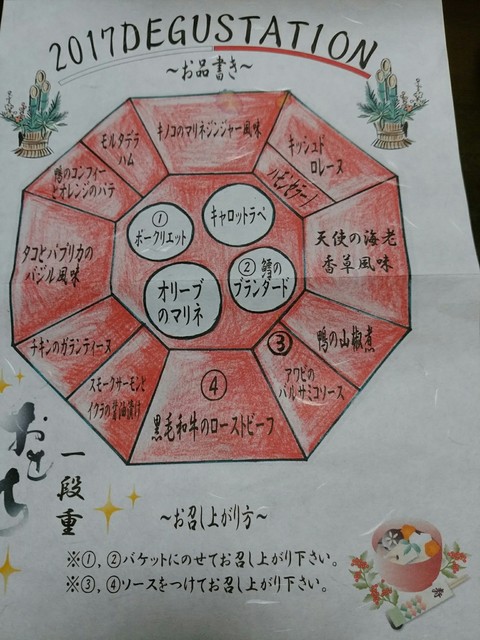 2017DEGUSTATION
～お品書き～
キノコのマリネジンジャー風味
モルタデラ
ハム
キッシュド
ロレーヌ
鴨のコンフィー
とオレンジのパテ
①
ポークリエット
キャロットラペ
タコとパプリカの
バジル風味
天使の海老
香草風味
② 鱈の
ブランダード
オリーブ
のマリネ
チキンのガランティーヌ
③
鴨の山椒煮
スモークサーモンと
イクラの醤油漬け
アワビの
バルサミコソース
④
黒毛和牛のローストビーフ
おせち
一段重
～お召し上がり方～
※①,②バケットにのせてお召し上がり下さい。
※③,④ソースをつけてお召し上がり下さい。